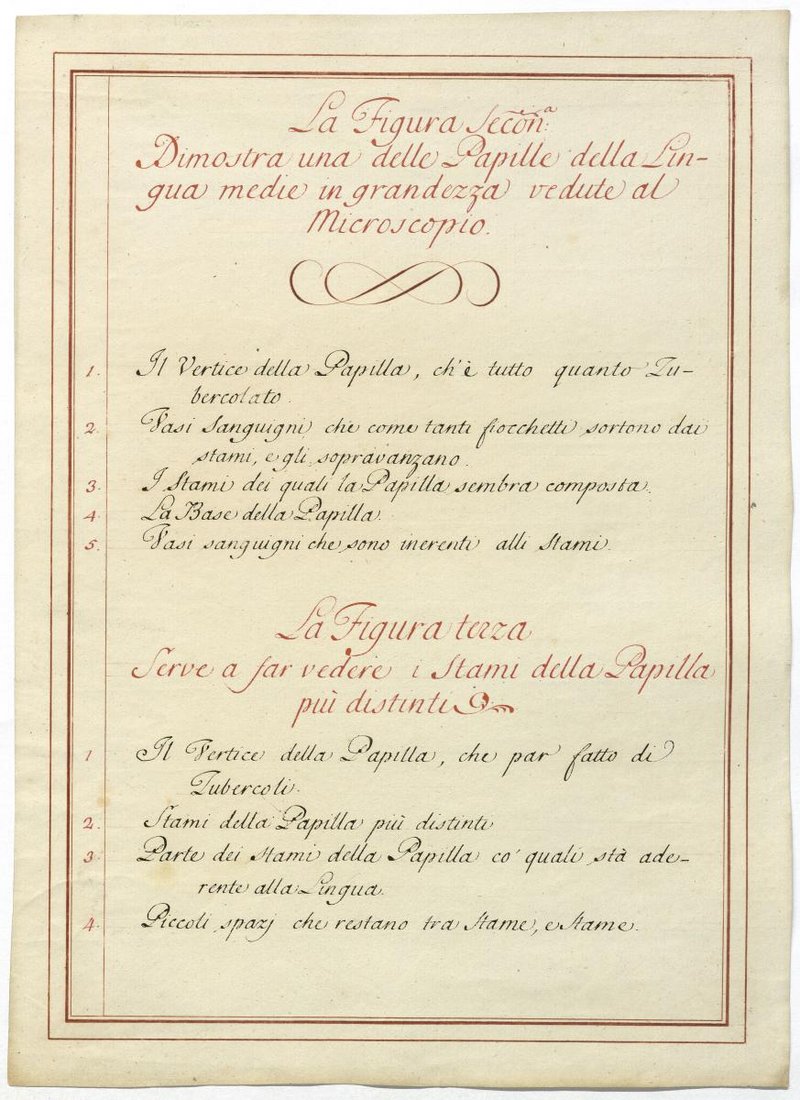 La Figura Secōn:ᵃ
Dimostra una delle Papille della Lin-
gua medie in grandezza vedute al
Microscopio.
1. Il Vertice della Papilla, ch'è tutto quanto Tu-
bercolato.
2. Vasi Sanguigni, che come tanti fiocchetti sortono dai
stami, e gli sopravanzano.
3. I Stami dei quali la Papilla sembra composta.
4. La Base della Papilla.
5. Vasi sanguigni che sono inerenti alli Stami.
La Figura terza
Serve a far vedere i Stami della Papilla
più distinti
1 Il Vertice della Papilla, che par fatto di
Tubercoli.
2. Stami della Papilla più distinti
3. Parte dei stami della Papilla co' quali stà ade-
rente alla Lingua.
4. Piccoli spazj che restano tra Stame, e Stame.